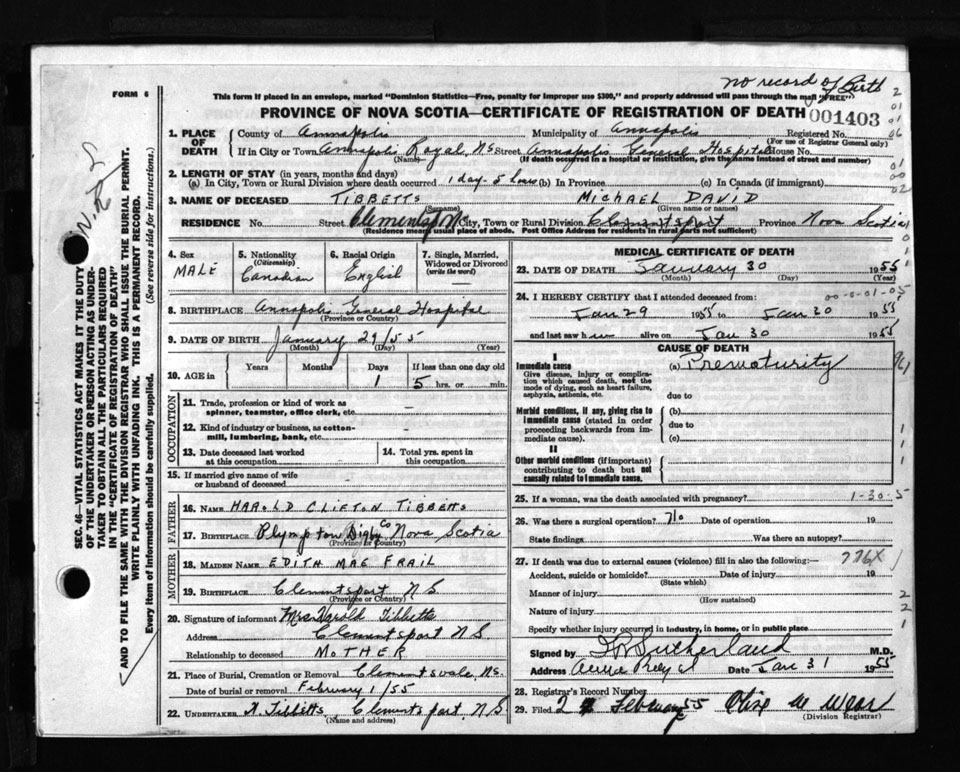 no record of Birth
FORM 6
This form if placed in an envelope, marked "Dominion Statistics—Free, penalty for improper use $300," and properly addressed will pass through the mail "FREE"
PROVINCE OF NOVA SCOTIA—CERTIFICATE OF REGISTRATION OF DEATH 001403
1. PLACE OF DEATH
County of Annapolis Municipality of Annapolis Registered No.
(For use of Registrar General only)
If in City or Town Annapolis Royal, NS Street Annapolis General Hospital House No.
(Name) (If death occurred in a hospital or institution, give the name instead of street and number)
2. LENGTH OF STAY (in years, months and days)
(a) In City, Town or Rural Division where death occurred 1 day - 5 hours (b) In Province (c) In Canada (if immigrant)
3. NAME OF DECEASED TIBBETTS MICHAEL DAVID
(Surname) (Given name or names)
RESIDENCE No. Street Clementsport NS City, Town or Rural Division Clementsport Province Nova Scotia
(Residence means usual place of abode. Post Office Address for residents in rural parts not sufficient)
4. Sex
MALE
5. Nationality
(Citizenship)
Canadian
6. Racial Origin
English
7. Single, Married, Widowed or Divorced
(write the word)
8. BIRTHPLACE Annapolis General Hospital
(Province or Country)
9. DATE OF BIRTH January 29/55
(Month) (Day) (Year)
10. AGE in Years Months Days If less than one day old
1 5 hrs. or min.
OCCUPATION
11. Trade, profession or kind of work as spinner, teamster, office clerk, etc.
12. Kind of industry or business, as cotton-mill, lumbering, bank, etc.
13. Date deceased last worked at this occupation
14. Total yrs. spent in this occupation
15. If married give name of wife or husband of deceased
FATHER
16. NAME HAROLD CLIFTON TIBBETTS
17. BIRTHPLACE Plympton Digby Co Nova Scotia
(Province or Country)
MOTHER
18. MAIDEN NAME EDITH MAE FRAIL
19. BIRTHPLACE Clementsport NS
(Province or Country)
20. Signature of informant Mrs Harold Tibbetts
Address Clementsport NS
Relationship to deceased MOTHER
21. Place of Burial, Cremation or Removal Clementsvale, NS.
Date of burial or removal February 1/55
22. UNDERTAKER Tibbetts, Clementsport, NS
(Name and address)
MEDICAL CERTIFICATE OF DEATH
23. DATE OF DEATH January 30 1955
(Month) (Day) (Year)
24. I HEREBY CERTIFY that I attended deceased from:
Jan 29 1955 to Jan 30 1955
and last saw him alive on Jan 30 1955
CAUSE OF DEATH
I
Immediate cause
Give disease, injury or complication which caused death, not the mode of dying, such as heart failure, asphyxia, asthenia, etc.
(a) Prematurity
due to
Morbid conditions, if any, giving rise to immediate cause (stated in order proceeding backwards from immediate cause).
(b)
due to
(c)
II
Other morbid conditions (if important) contributing to death but not causally related to immediate cause.
25. If a woman, was the death associated with pregnancy? 1-30-5
26. Was there a surgical operation? No Date of operation 19
State findings Was there an autopsy?
27. If death was due to external causes (violence) fill in also the following:— 776X
Accident, suicide or homicide? Date of injury 19
(State which)
Manner of injury
(How sustained)
Nature of injury
Specify whether injury occurred in industry, in home, or in public place
Signed by Sutherland M.D.
Address Date Jan 31 1955
28. Registrar's Record Number
29. Filed 2 February 55
(Division Registrar)
SEC. 46—VITAL STATISTICS ACT MAKES IT THE DUTY OF THE UNDERTAKER OR PERSON ACTING AS UNDERTAKER TO OBTAIN ALL THE PARTICULARS REQUIRED IN THE "CERTIFICATE OF REGISTRATION OF DEATH" AND TO FILE THE SAME WITH THE DIVISION REGISTRAR WHO SHALL ISSUE THE BURIAL PERMIT.
WRITE PLAINLY WITH UNFADING INK. THIS IS A PERMANENT RECORD.
Every item of information should be carefully supplied. (See reverse side for instructions.)